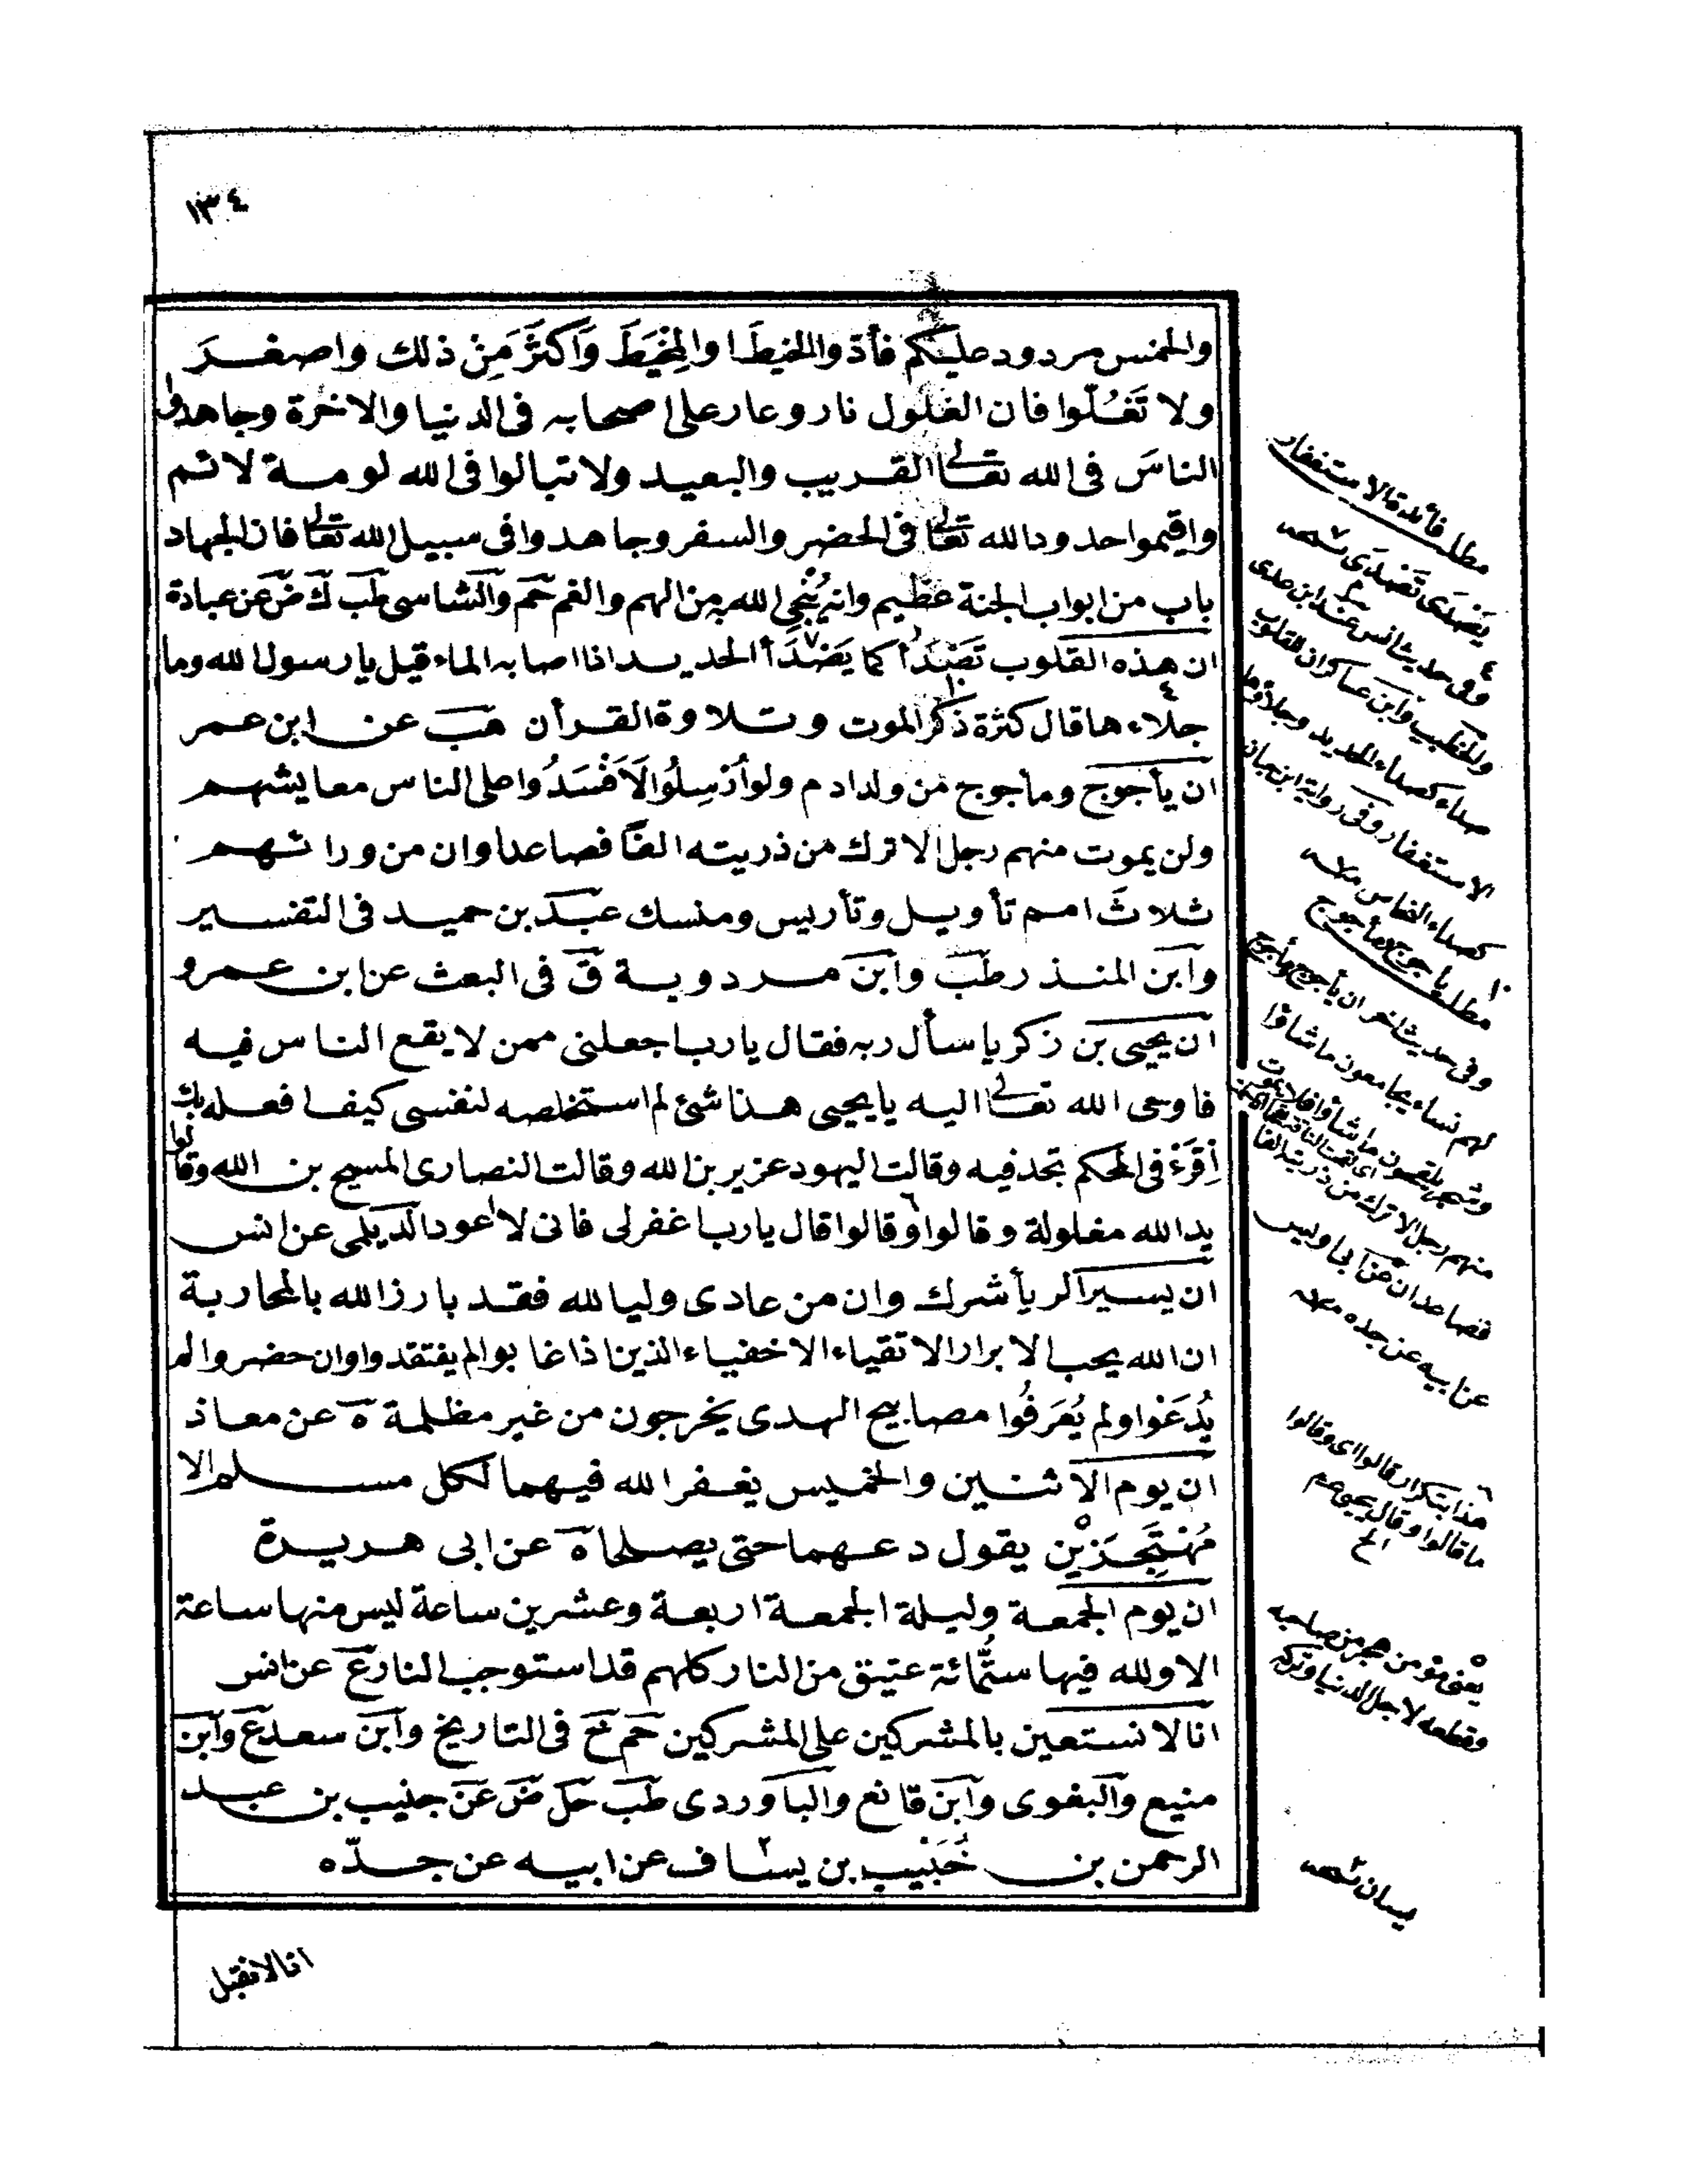 ١٣٤
والخمس مردود عليكم فأدّوا الخيطَا والمِخْيَطَ وَاَكثَرَ مَِنْ ذلك واصغرَ
ولا تَغُلّوا فان الغلول نار وعار على اصحابه فى الدنيا والاخرة وجاهدوا
الناسَ فى الله تعالى القريب والبعيد ولا تبالوا فى الله لومة لائم
واقيموا حدود الله تعالى فى الحضر والسفر وجاهدوا فى سبيل الله تعالى فان الجهاد
باب من ابواب الجنة عظيم وانه يُنْجِى الله به من الهم والغم حم والشاسى طب ك ض عن عبادة
ان هذه القلوب تَصْدَأُ كما يَصْدَأ الحديد اذا اصابه الماء قيل يا رسول الله وما
جلاءها قال كثرة ذكر الموت وتلاوة القرأن هب عن ابن عمر
ان يأجوج ومأجوج من ولد ادم ولو أُرْسِلُوا لَاَفْسَدُوا على الناس معايشهم
ولن يموت منهم رجل الا ترك من ذريته الفًا فصاعدا وان من ورائهم
ثلاثَ امم تأويل وتأريس ومنسك عبد بن حميد فى التفسير
وابن المنذر طب وابن مردوية ق فى البعث عن ابن عمرو
ان يحيى بن زكريا سأل ربه فقال يا رب اجعلنى ممن لا يقع الناس فيه
فاوحى الله تعالى اليه يا يحيى هذا شئ لم استخلصه لنفسى كيف افعله بك
اِقْرَءْ فى المحكم تجد فيه وقالت اليهود عزير بن الله وقالت النصارى المسيح بن الله وقالوا
يد الله مغلولة وقالوا وقالوا قال يا رب اغفر لى فانى لا اعود الديلمى عن انس
ان يسير الريأ شرك وان من عادى وليا لله فقد بارز الله بالمحاربة
ان الله يحب الابرار الاتقياء الاخفياء الذين اذا غابوا لم يفتقدوا وان حضروا لم
يُدعَوا ولم يُعرَفُوا مصابيح الهدى يخرجون من غير مظلمة ه عن معاذ
ان يوم الاثنين والخميس يغفر الله فيهما لكل مسلم الا
مُهْتَجِرَيْنِ يقول دعهما حتى يصلحا ه عن ابى هريرة
ان يوم الجمعة وليلة الجمعة اربعة وعشرين ساعة ليس منها ساعة
الا ولله فيها ستُّمائة عتيق من النار كلهم قد استوجب النار ع عن انس
انا لا نستعين بالمشركين على المشركين حم خ فى التاريخ وابن سعد ع وابن
منيع والبغوى وابن قانع والباوردى طب حل ض عن جنيب بن عبد
الرحمن بن خُبَيْب بن يساف عن ابيه عن جدّه
انا لا نقبل
مطلب فائدة الاستغفار
يَصْدَى تَصْدَى نسخه
وفى حديث انس عند ابن عدى
والخطيب وابن عساكر ان للقلوب
صداء كصداء الحديد وجلاؤها
الاستغفار وفى رواية ابن حبان
كصداء النحاس منه
مطلب يأجوج ومأجوج
وفى حديث اخر ان يأجوج ومأجوج
لهم نساء يجامعون ما شاؤا
وشجر يلقحون ما شاؤا فلا يموت
منهم رجل الا ترك من ذريته الفا
فصاعدا ن عن ابن اوس
عن ابيه عن جده منه
هذا بتكرار قالوا اى وقالوا
ما قالوا وقال يحيى عم
الخ
يعنى مؤمن هجر من صاحبه
وقطعه لاجل الدنيا وتركه
يسان نسخه